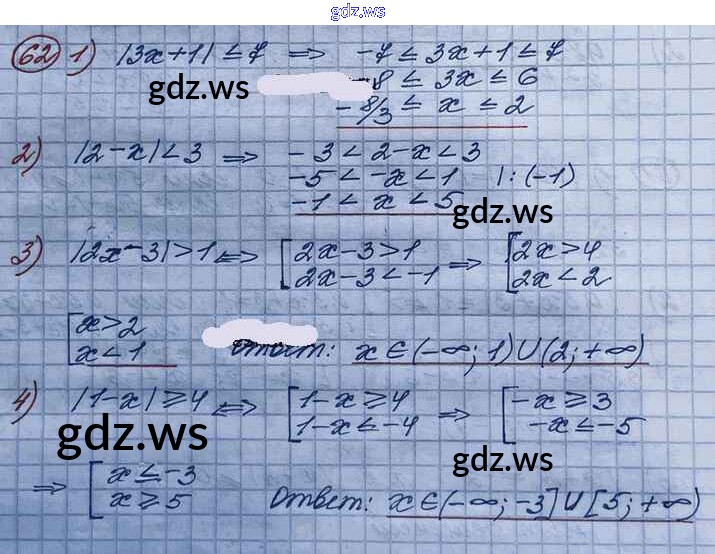 gdz.ws
62 1) |3x+1| ≤ 7 ⇒ -7 ≤ 3x+1 ≤ 7
gdz.ws
-8 ≤ 3x ≤ 6
-8/3 ≤ x ≤ 2
2) |2-x| < 3 ⇒ -3 < 2-x < 3
-5 < -x < 1 |: (-1)
-1 < x < 5
gdz.ws
3) |2x-3| > 1 ⇔ [2x-3 > 1 ⇒ [2x > 4
2x-3 < -1 2x < 2
[x > 2
x < 1 Ответ: x ∈ (-∞; 1) ∪ (2; +∞)
4) |1-x| ≥ 4 ⇔ [1-x ≥ 4 ⇒ [-x ≥ 3
1-x ≤ -4 -x ≤ -5
gdz.ws
gdz.ws
⇒ [x ≤ -3
x ≥ 5 Ответ: x ∈ (-∞; -3] ∪ [5; +∞)